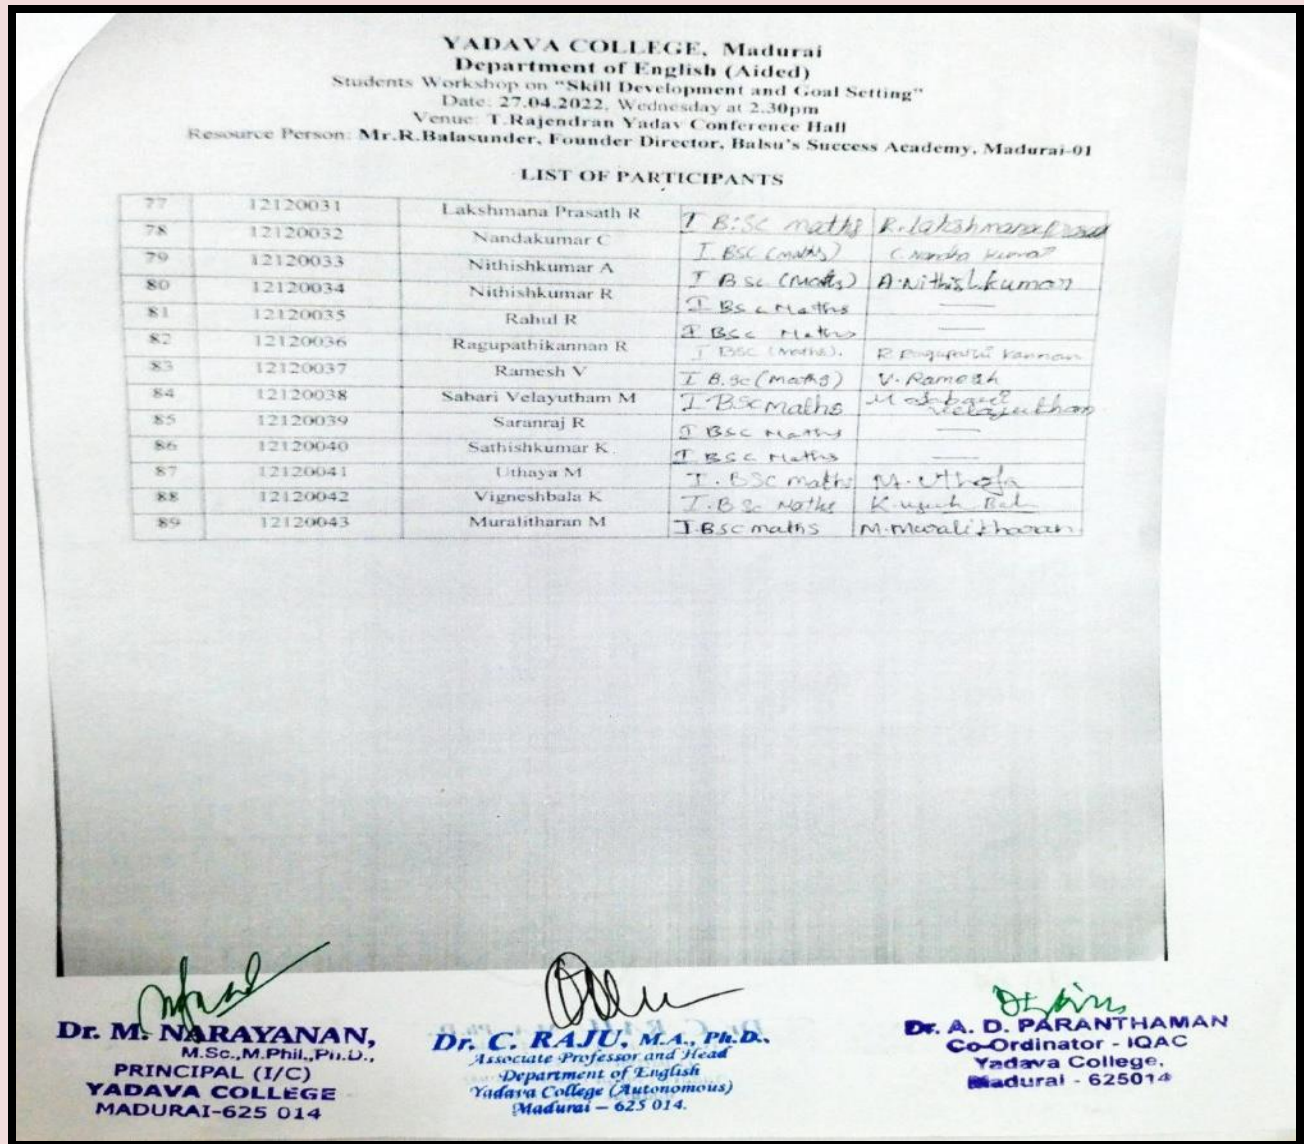 YADAVA COLLEGE, Madurai
Department of English (Aided)
Students Workshop on "Skill Development and Goal Setting"
Date: 27.04.2022, Wednesday at 2.30pm
Venue: T.Rajendran Yadav Conference Hall
Resource Person: Mr.R.Balasunder, Founder Director, Balsu's Success Academy, Madurai-01
LIST OF PARTICIPANTS
77 12120031 Lakshmana Prasath R I B.SC maths R. Lakshmana
78 12120032 Nandakumar C I BSC (maths) C Nandha Kumar
79 12120033 Nithishkumar A I B sc (maths) A.Nithishkumar
80 12120034 Nithishkumar R I BSc Maths —
81 12120035 Rahul R I BSc Maths —
82 12120036 Ragupathikannan R I BSC (Maths). R Kannan
83 12120037 Ramesh V I B.Sc (maths) V. Ramesh
84 12120038 Sabari Velayutham M I BSC maths M
85 12120039 Saranraj R I BSC Maths —
86 12120040 Sathishkumar K I BSC Maths —
87 12120041 Uthaya M I. BSC maths M. Uthaya
88 12120042 Vigneshbala K I.B Sc Maths
89 12120043 Muralitharan M I.Bsc maths M.Muralitharan
Dr. M. NARAYANAN,
M.Sc.,M.Phil.,Ph.D.,
PRINCIPAL (I/C)
YADAVA COLLEGE
MADURAI-625 014
Dr. C. RAJU, M.A., Ph.D.,
Associate Professor and Head
Department of English
Yadava College (Autonomous)
Madurai – 625 014.
Dr. A. D. PARANTHAMAN
Co-Ordinator - IQAC
Yadava College,
Madurai - 625014